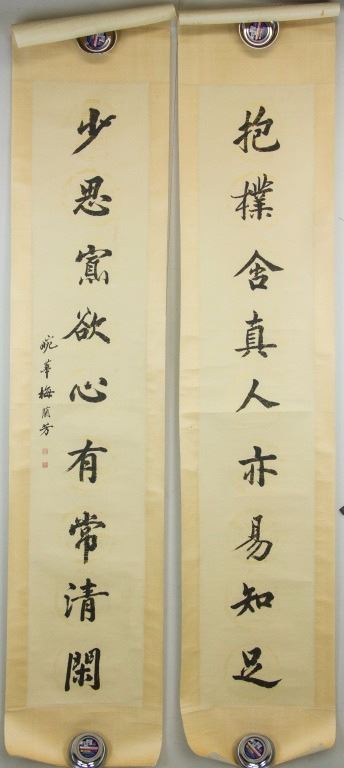 抱樸含真人亦易知足
少思寡欲心有常清閑
畹華梅蘭芳